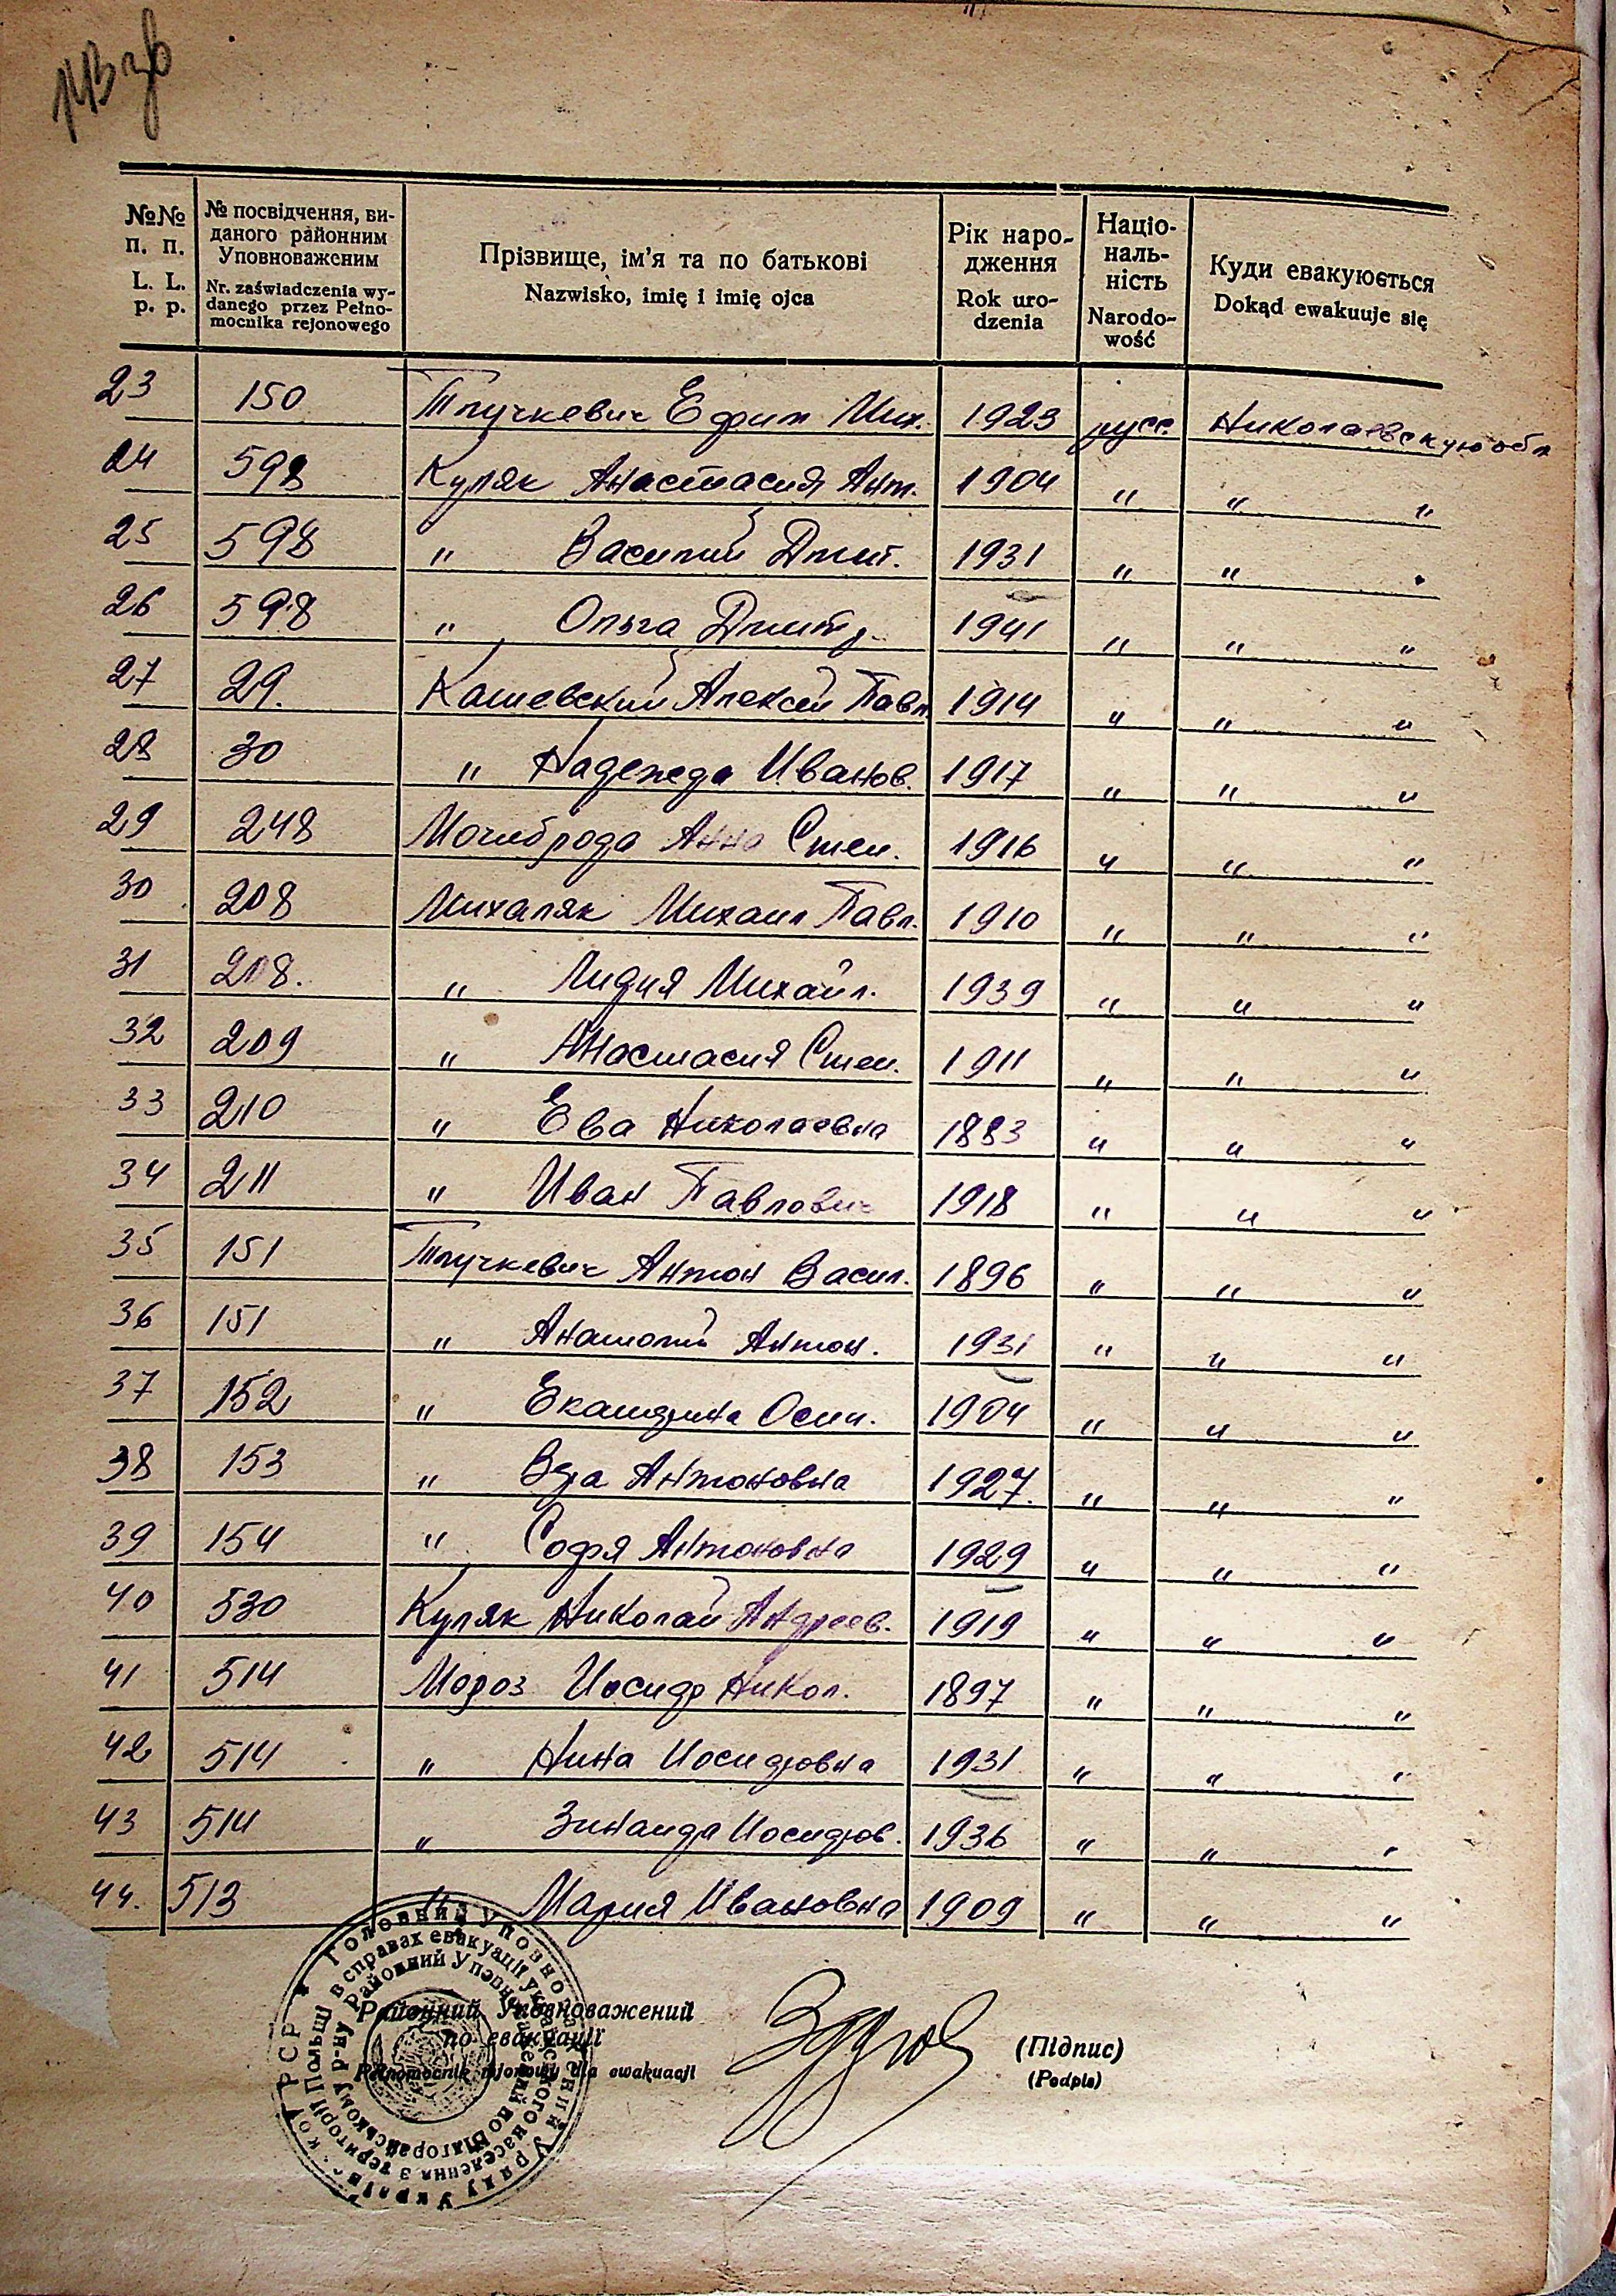 113 зв
№№ п. п. L. L. p. p.
№ посвідчення, ви-
даного районним
Уповноваженим
Nr. zaświadczenia wy-
danego przez Pełno-
mocnika rejonowego
Прізвище, ім'я та по батькові
Nazwisko, imię i imię ojca
Рік наро-
дження
Rok uro-
dzenia
Націо-
наль-
ність
Narodo-
wość
Куди евакуюється
Dokąd ewakuuje się
23 150 Тлучкевич Ефим Мих. 1923 русс. Николаевскую обл
24 598 Куляк Анастасия Ант. 1904 " " "
25 598 " Василий Дмит. 1931 " " "
26 598 " Ольга Дмитр. 1941 " " "
27 29. Кашевский Алексей Павл 1914 " " "
28 30 " Надежда Иванов. 1917 " " "
29 248 Мочиброда Анна Степ. 1916 " " "
30 208 Михаляк Михаил Павл. 1910 " " "
31 208. " Лидия Михайл. 1939 " " "
32 209 " Анастасия Степ. 1911 " " "
33 210 " Ева Николаевна 1883 " " "
34 211 " Иван Павлович 1918 " " "
35 151 Тлучкевич Антон Васил. 1896 " " "
36 151 " Анатолий Антон. 1931 " " "
37 152 " Екатерина Осип. 1904 " " "
38 153 " Вера Антоновна 1927. " " "
39 154 " Софя Антоновна 1929 " " "
40 530 Куляк Николай Андреев. 1919 " " "
41 514 Мороз Иосиф Никол. 1897 " " "
42 514 " Нина Иосифовна 1931 " " "
43 514 " Зинаида Иосифов. 1936 " " "
44. 513 " Мария Ивановна 1909 " " "
Районний Уповноважений
по евакуації
Pełnomocnik rejonowy dla ewakuacji
(Підпис)
(Podpis)
Головний Уповноважений Уряду Української РСР
в справах евакуації українського населення з території Польщі
Районний Уповноважений по Білгорайському р-ну